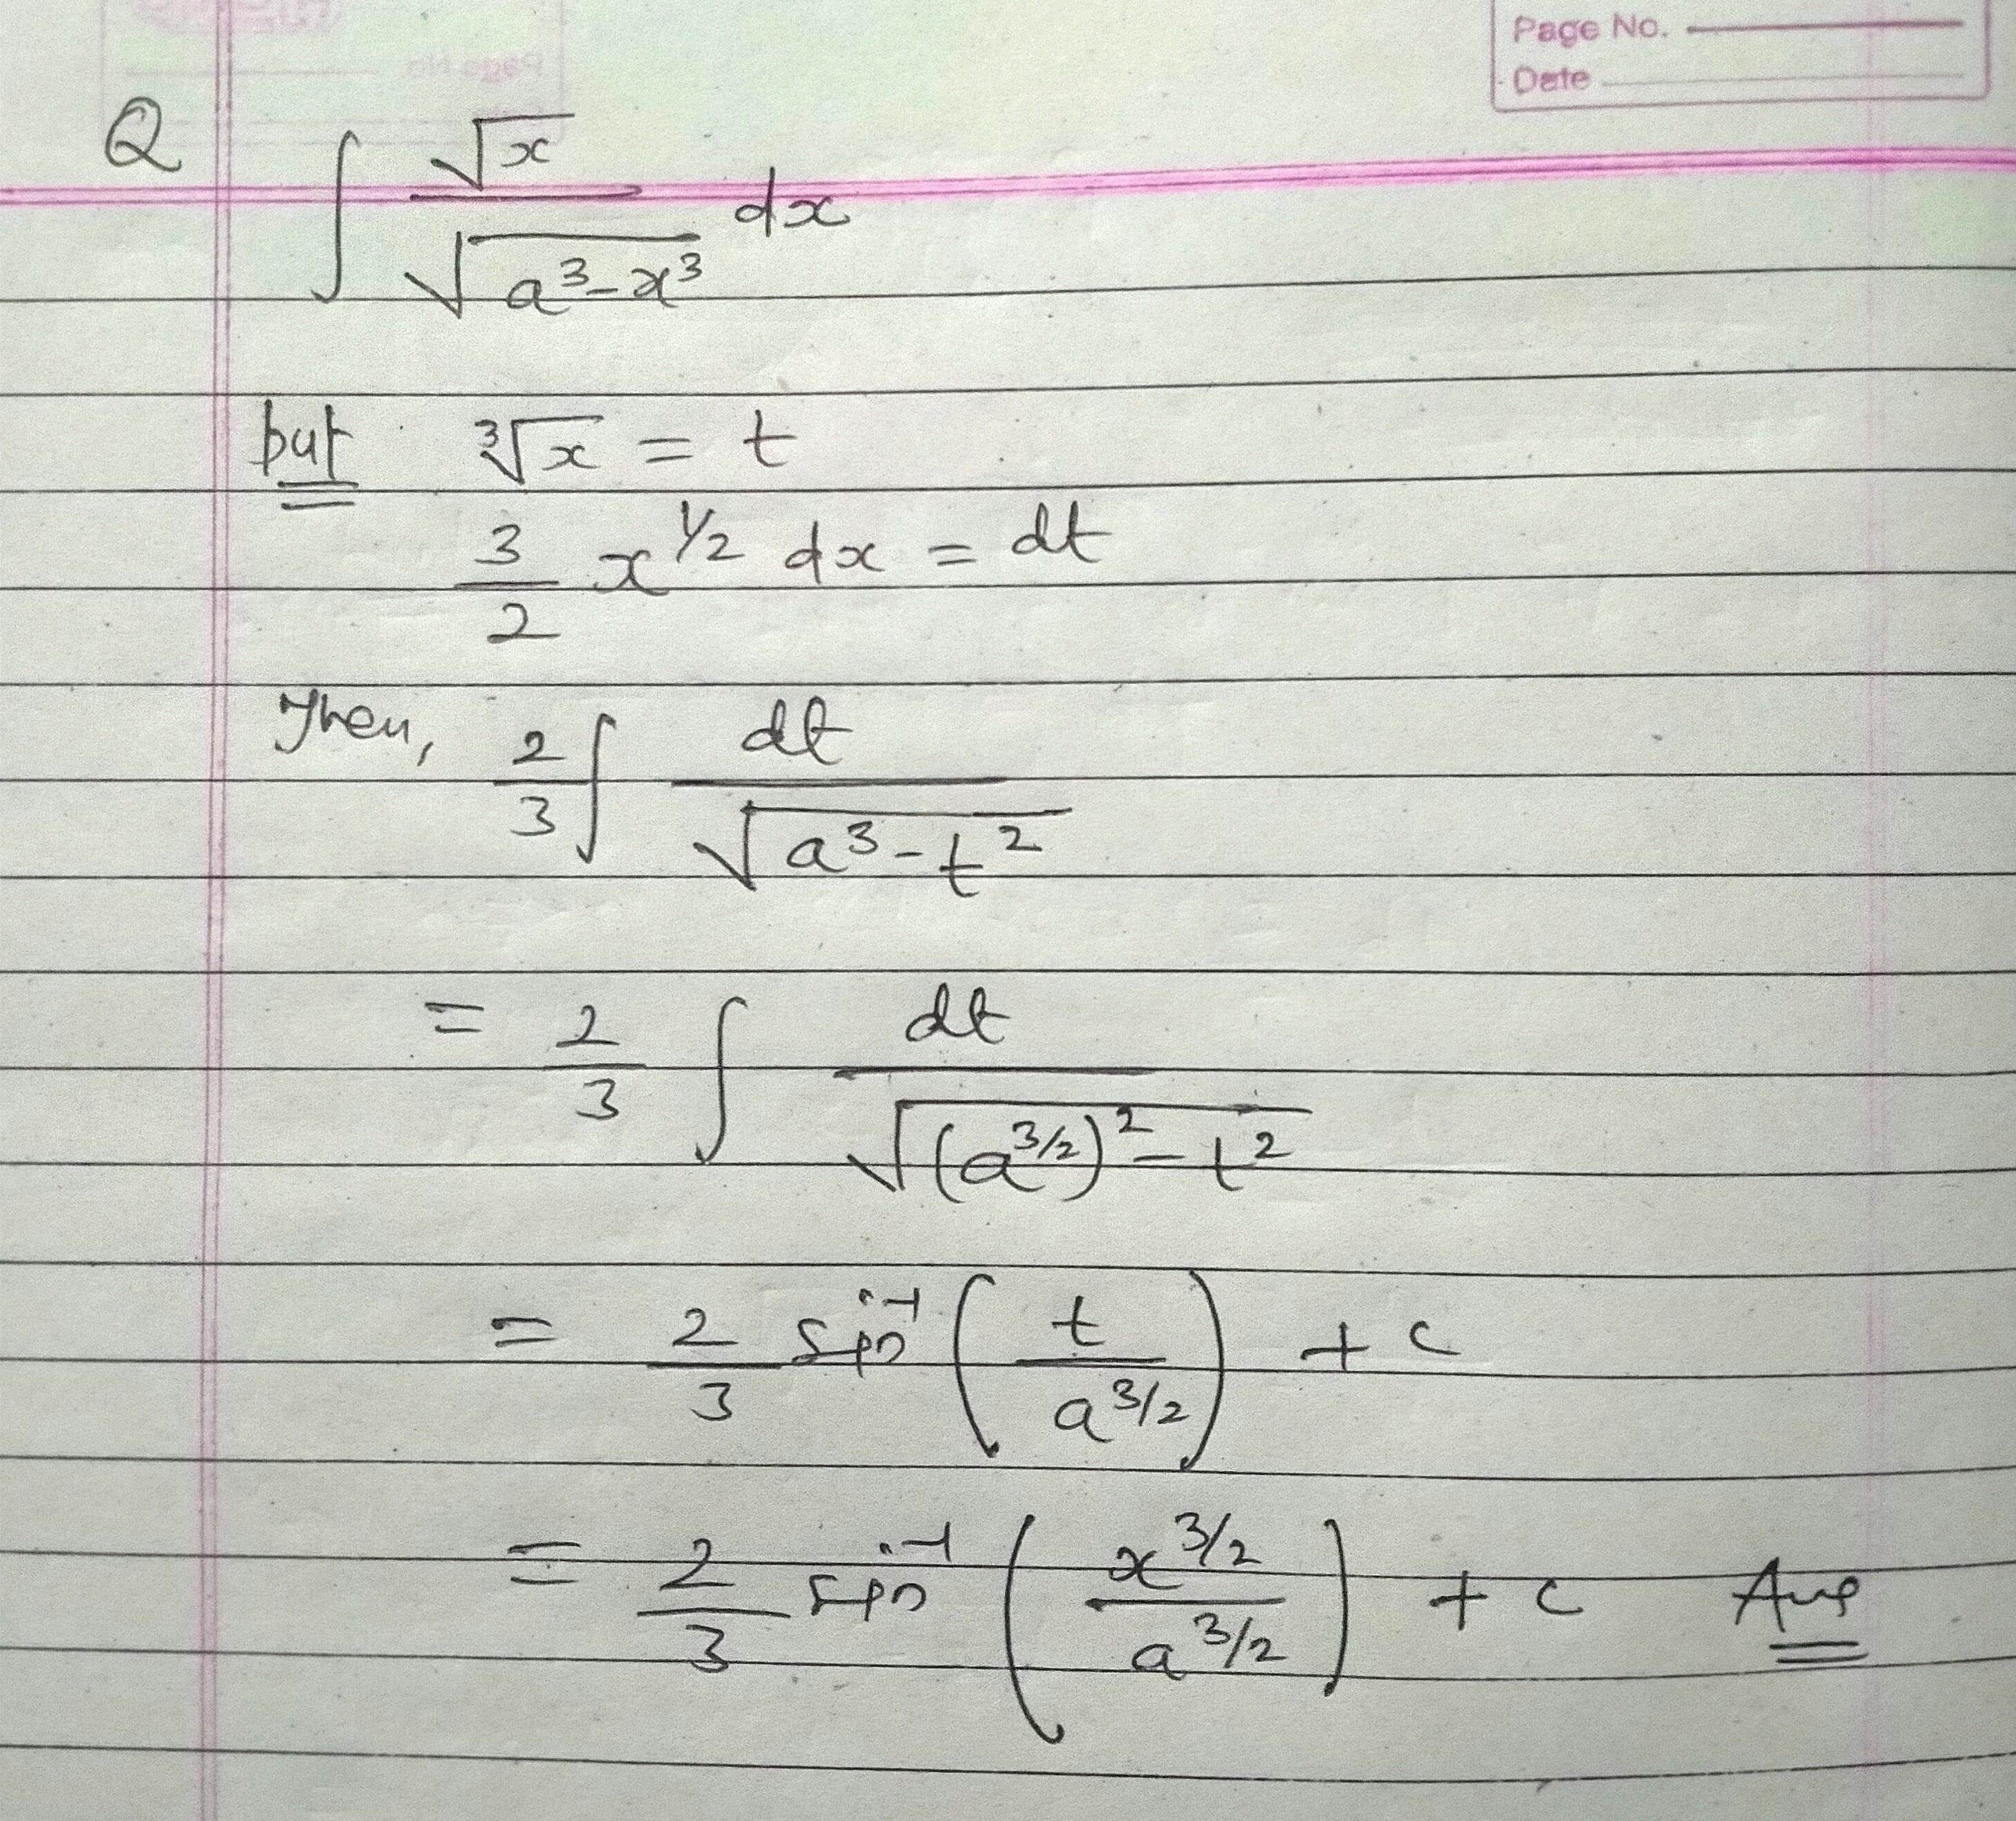 Page No.
Date
Q ∫ √x / √(a³-x³) dx
put ³√x = t
3/2 x^(1/2) dx = dt
Then, 2/3 ∫ dt / √(a³-t²)
= 2/3 ∫ dt / √((a^(3/2))²-t²)
= 2/3 sin⁻¹ (t / a^(3/2)) + c
= 2/3 sin⁻¹ (x^(3/2) / a^(3/2)) + c Ans